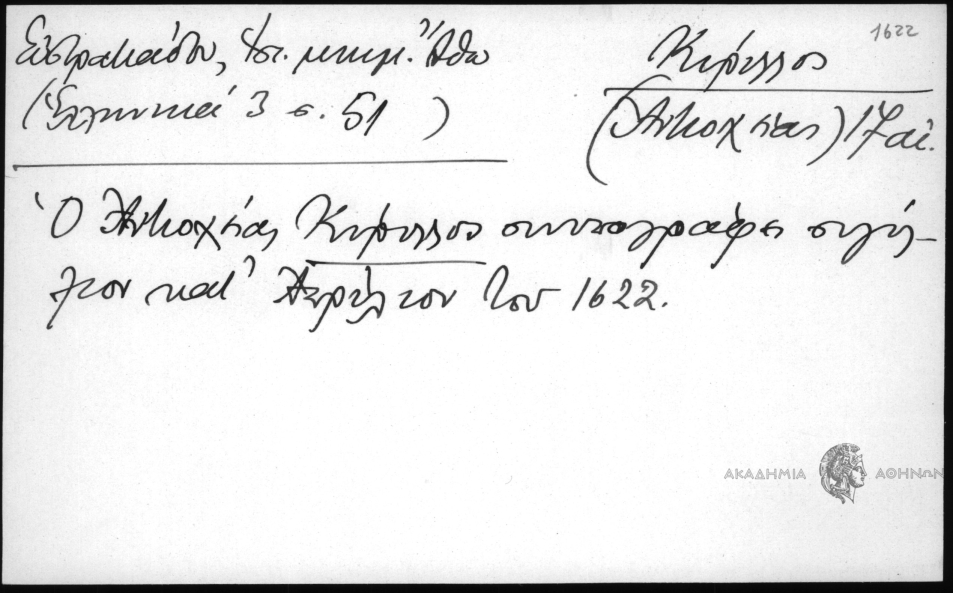 1622
Εὐστρατιάδου, Ἱστ. μνημ. Ἄθω
(Ἑλληνικά 3 σ. 51)
Κύριλλος
(Ἀντιοχείας) 17 αἰ.
Ὁ Ἀντιοχείας Κύριλλος συνυπογράφει σιγίλ-
λιον κατ' Ἀπρίλιον τοῦ 1622.
ΑΚΑΔΗΜΙΑ ΑΘΗΝΩΝ